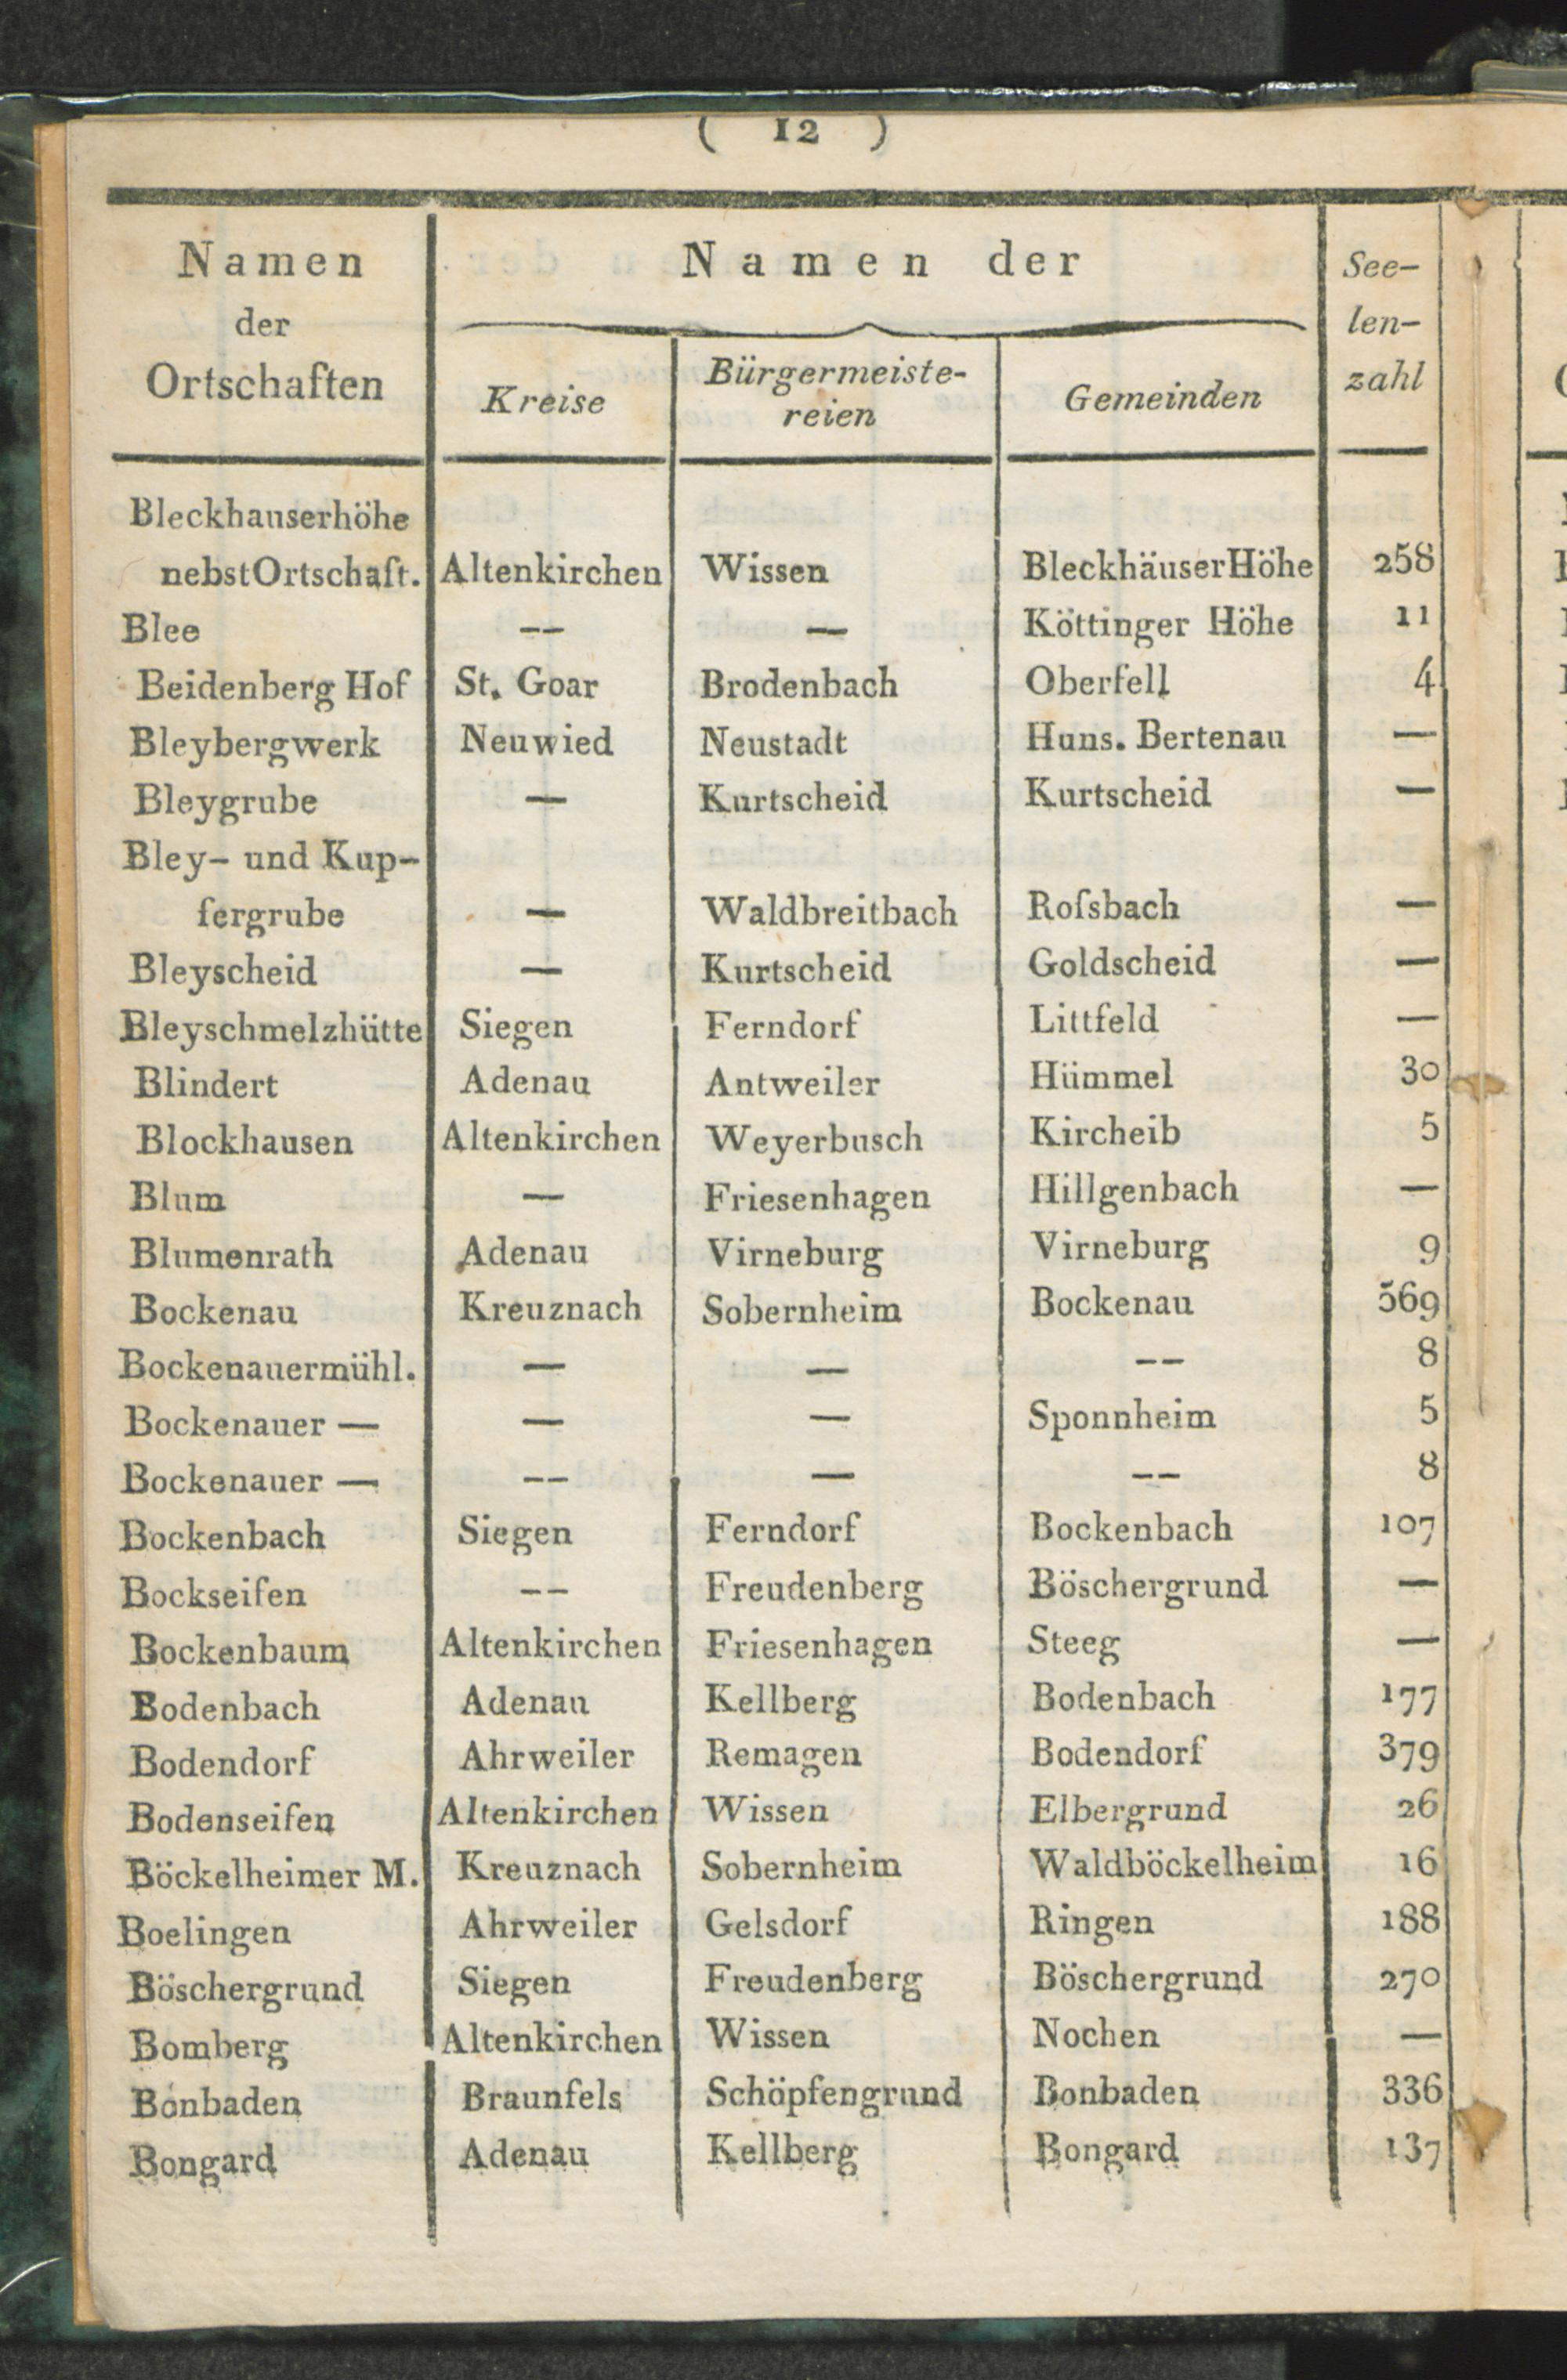 ( 12 )
Namen
der
Ortschaften
Namen der
See-
len-
zahl
Kreise
Bürgermeiste-
reien
Gemeinden
Bleckhauserhöhe
nebst Ortschaft. Altenkirchen Wissen Bleckhäuser Höhe 258
Blee — — Köttinger Höhe 11
Beidenberg Hof St. Goar Brodenbach Oberfell 4
Bleybergwerk Neuwied Neustadt Huns. Bertenau —
Bleygrube — Kurtscheid Kurtscheid —
Bley- und Kup-
fergrube — Waldbreitbach Roſsbach —
Bleyscheid — Kurtscheid Goldscheid —
Bleyschmelzhütte Siegen Ferndorf Littfeld —
Blindert Adenau Antweiler Hümmel 30
Blockhausen Altenkirchen Weyerbusch Kircheib 5
Blum — Friesenhagen Hillgenbach —
Blumenrath Adenau Virneburg Virneburg 9
Bockenau Kreuznach Sobernheim Bockenau 569
Bockenauermühl. — — — 8
Bockenauer — — — Sponnheim 5
Bockenauer — — — — 8
Bockenbach Siegen Ferndorf Bockenbach 107
Bockseifen — Freudenberg Böschergrund —
Bockenbaum Altenkirchen Friesenhagen Steeg —
Bodenbach Adenau Kellberg Bodenbach 177
Bodendorf Ahrweiler Remagen Bodendorf 379
Bodenseifen Altenkirchen Wissen Elbergrund 26
Böckelheimer M. Kreuznach Sobernheim Waldböckelheim 16
Boelingen Ahrweiler Gelsdorf Ringen 188
Böschergrund Siegen Freudenberg Böschergrund 270
Bomberg Altenkirchen Wissen Nochen —
Bonbaden Braunfels Schöpfengrund Bonbaden 336
Bongard Adenau Kellberg Bongard 137